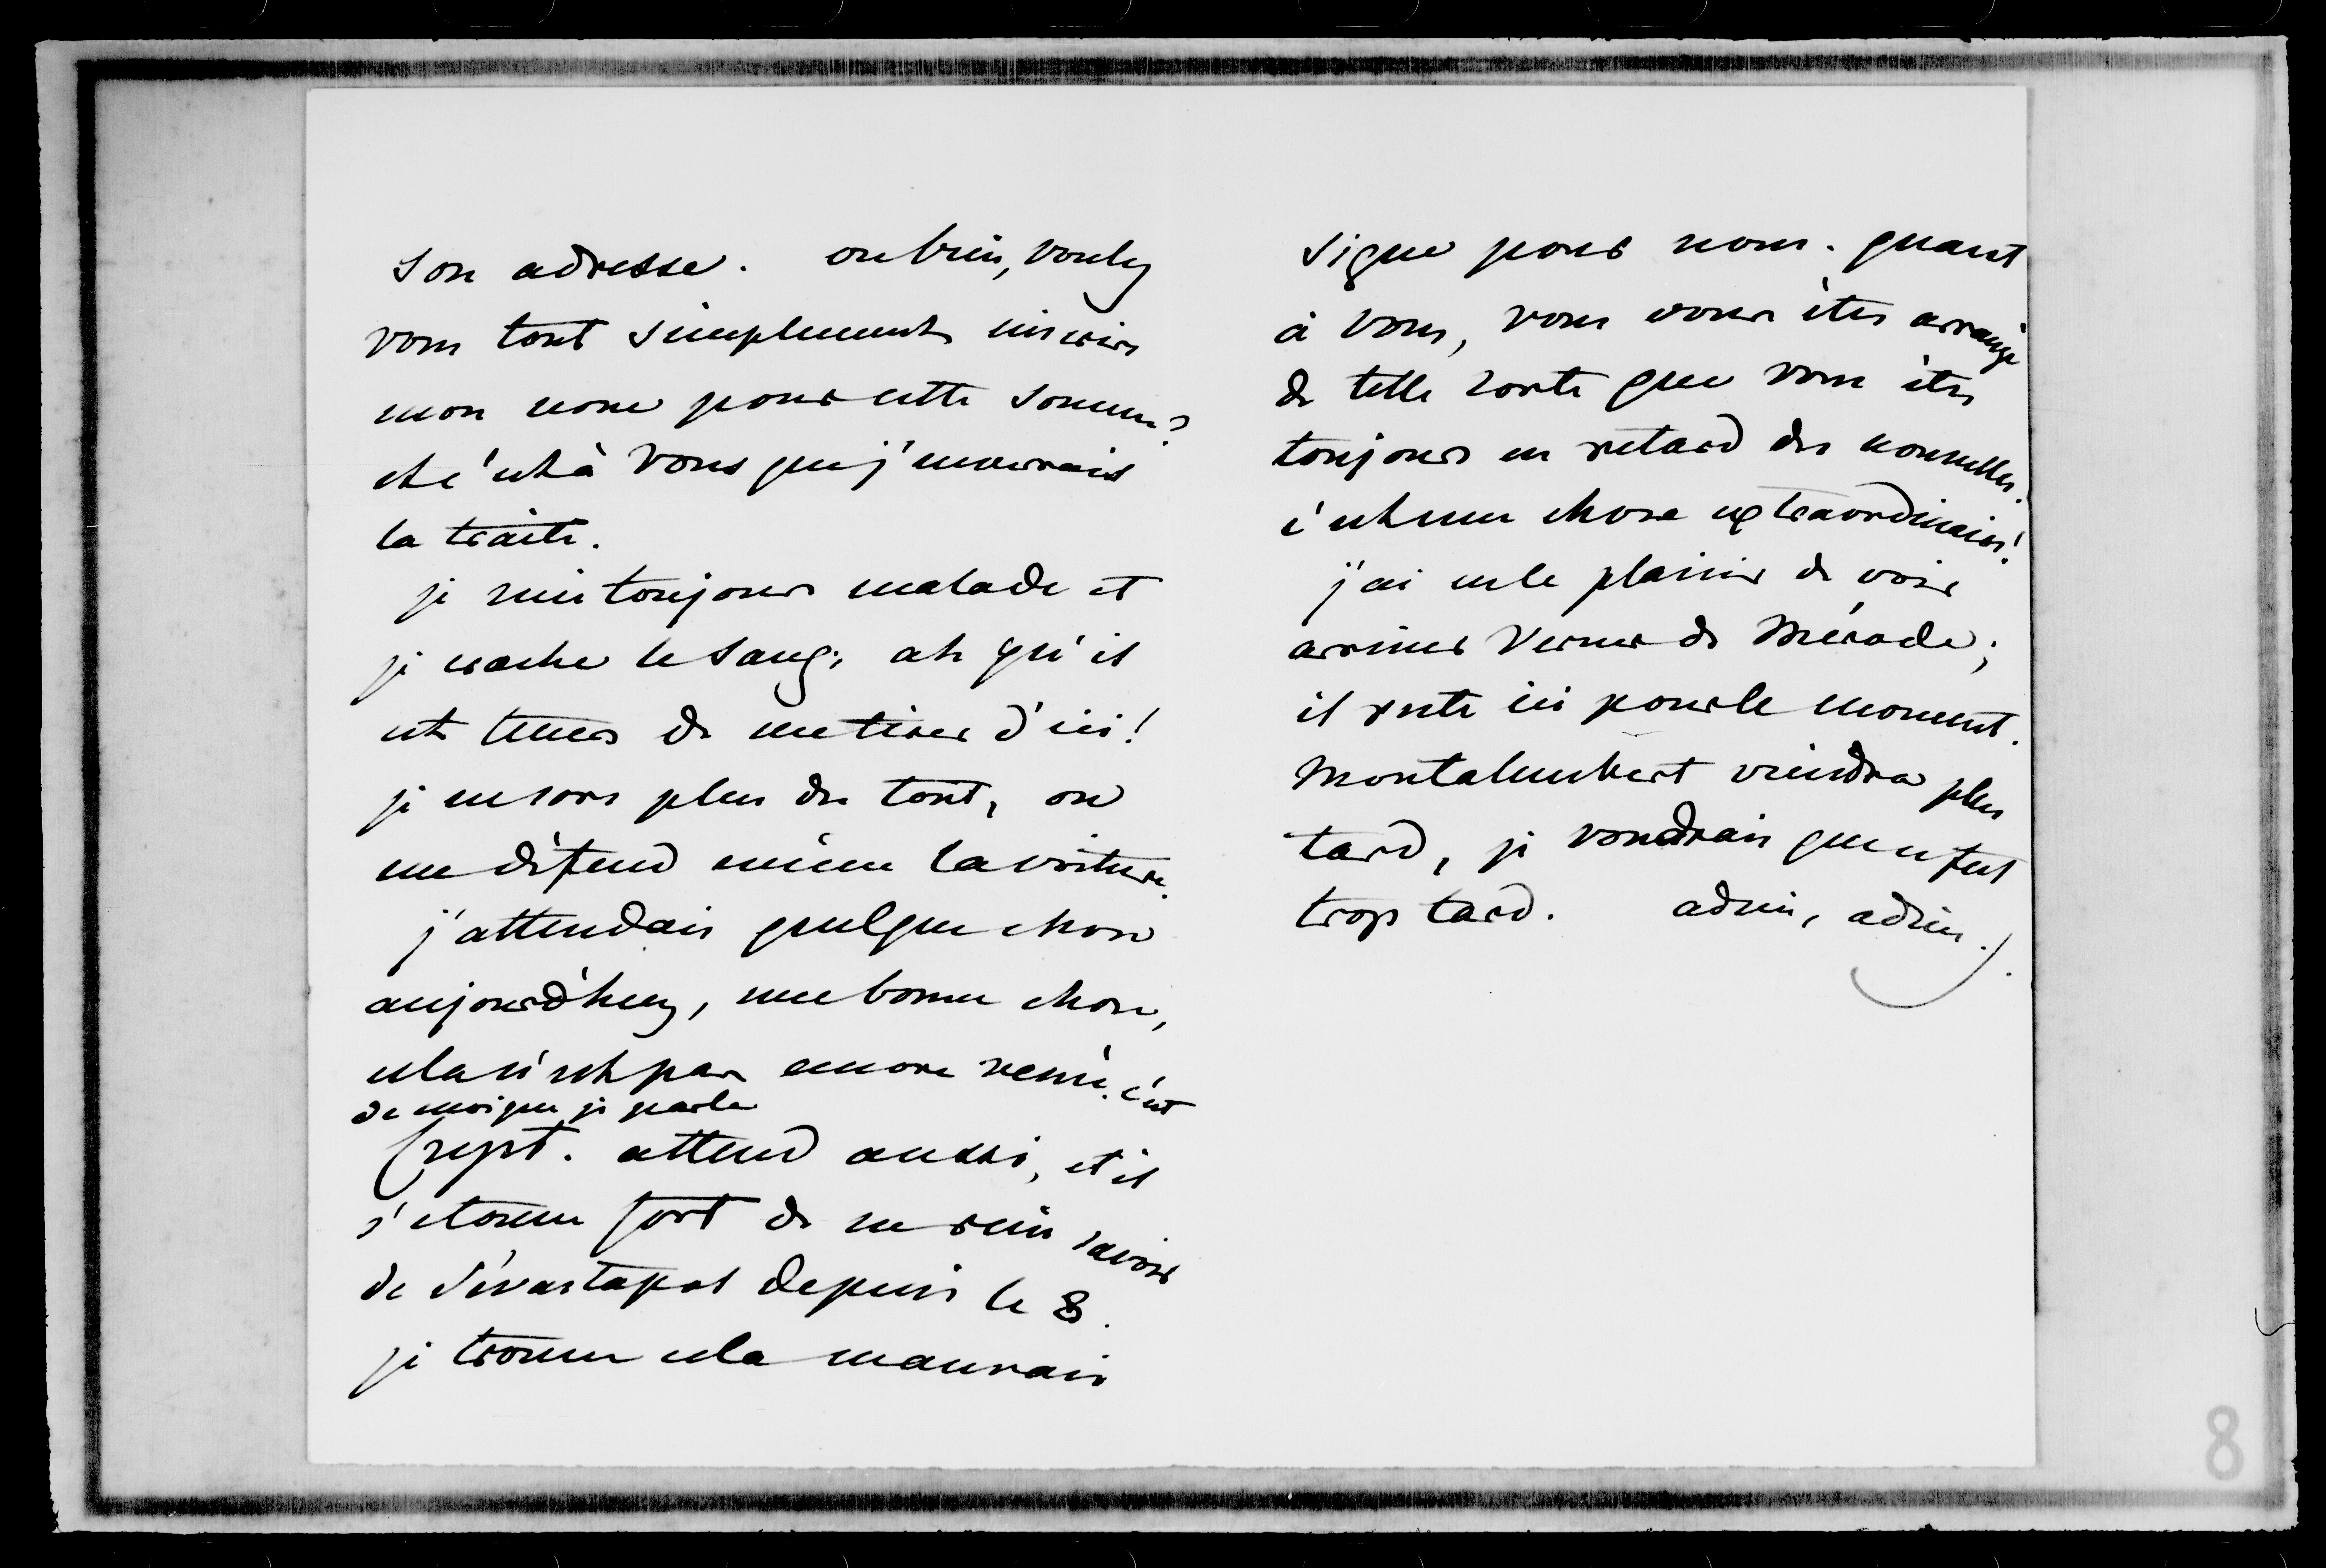 son adresse. ou bien, voulez
vous tout simplement inscrire
mon nom pour cette somme?
et c'est à vous que j'enverrais
la traite.
je suis toujours malade et
je crache le sang; ah qu'il
est temps de me tirer d'ici!
je ne sors plus du tout, on
me défend même la voiture.
j'attendais quelque chose
aujourd'huy, une bonne chose,
cela n'est pas encore venu. c'est
de moi que je parle
(rept. attend aussi, et il
s'etonne fort de ne rien savoir
de Sévastapol depuis le 8.
je trouve cela mauvais
signe pour nous. quant
à vous, vous vous êtes arrangé
de telle sorte que vous êtes
toujours en retard des nouvelles.
c'est une chose extraordinaire!
j'ai eu le plaisir de voir
arriver Verner de Mérode;
il reste ici pour le moment.
Montalembert viendra plus
tard, je voudrais que ce fut
trop tard. adieu, adieu.
8